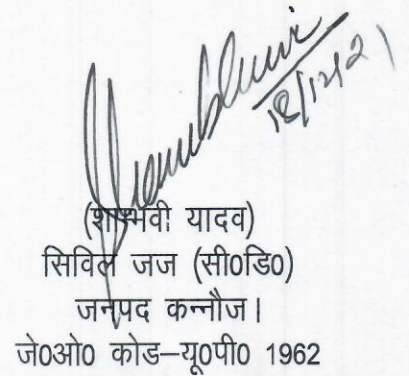 18/12/21
(शाम्भवी यादव)
सिविल जज (सी0डि0)
जनपद कन्नौज।
जे0ओ0 कोड–यू0पी0 1962